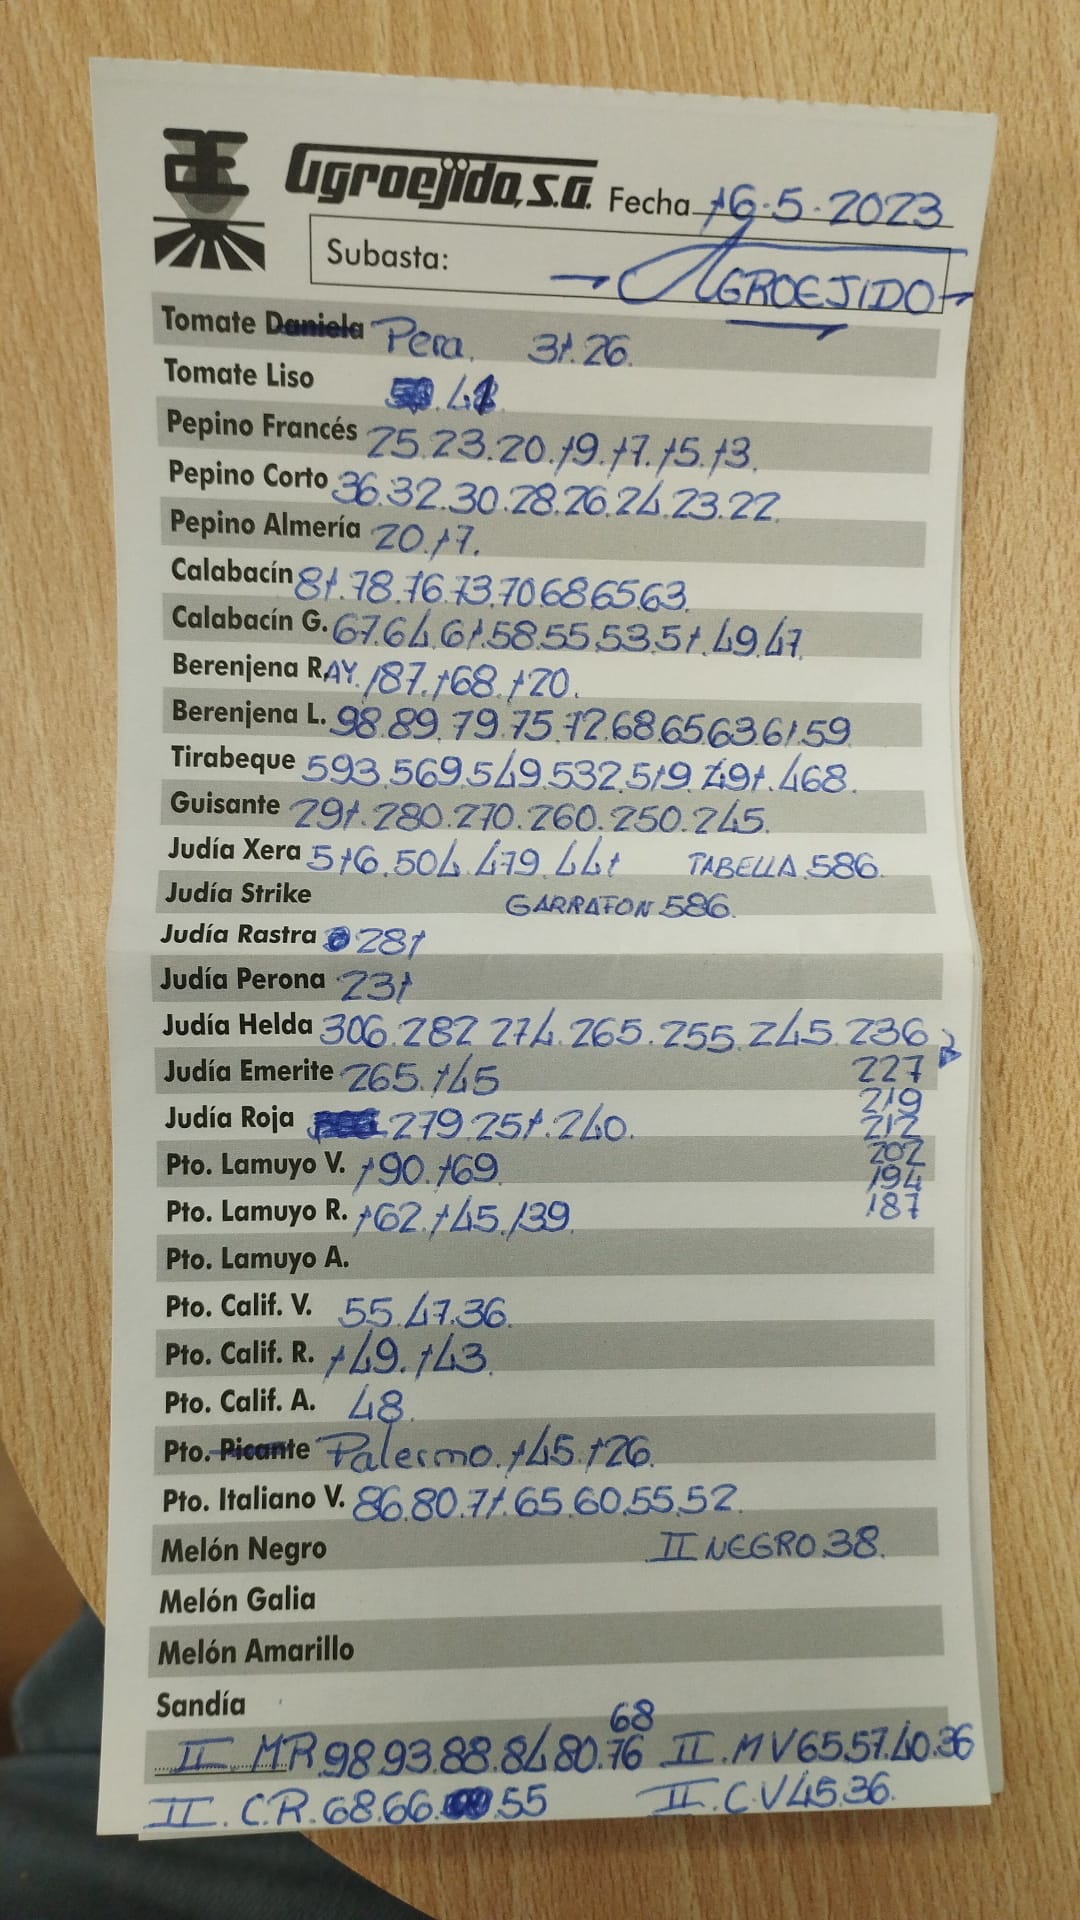 Agroejido, S.A. Fecha 16.5.2023
Subasta: AGROEJIDO
Tomate Daniela Pera. 31.26.
Tomate Liso 41.
Pepino Francés 25.23.20.19.17.15.13.
Pepino Corto 36.32.30.28.26.24.23.22
Pepino Almería 20.17.
Calabacín 81.78.76.73.70.68.65.63.
Calabacín G. 67.64.61.58.55.53.51.49.47.
Berenjena RAY. 187.168.120.
Berenjena L. 98.89.79.75.72.68.65.63.61.59
Tirabeque 593.569.549.532.519.491.468.
Guisante 291.280.270.260.250.245.
Judía Xera 516.504.479.441 TABELLA.586.
Judía Strike GARRAFON.586.
Judía Rastra 281
Judía Perona 231
Judía Helda 306.282.274.265.255.245.236
Judía Emerite 265.145 227
219
Judía Roja 279.251.240. 212
Pto. Lamuyo V. 190.169. 202
194
Pto. Lamuyo R. 162.145.139. 187
Pto. Lamuyo A.
Pto. Calif. V. 55.47.36.
Pto. Calif. R. 149.143.
Pto. Calif. A. 48.
Pto. Picante Palermo.145.126.
Pto. Italiano V. 86.80.71.65.60.55.52.
Melón Negro II NEGRO.38.
Melón Galia
Melón Amarillo
Sandía
68
II.MR.98.93.88.84.80.76 II.MV65.57.40.36
II.C.R.68.66.55 II.C.V45.36.